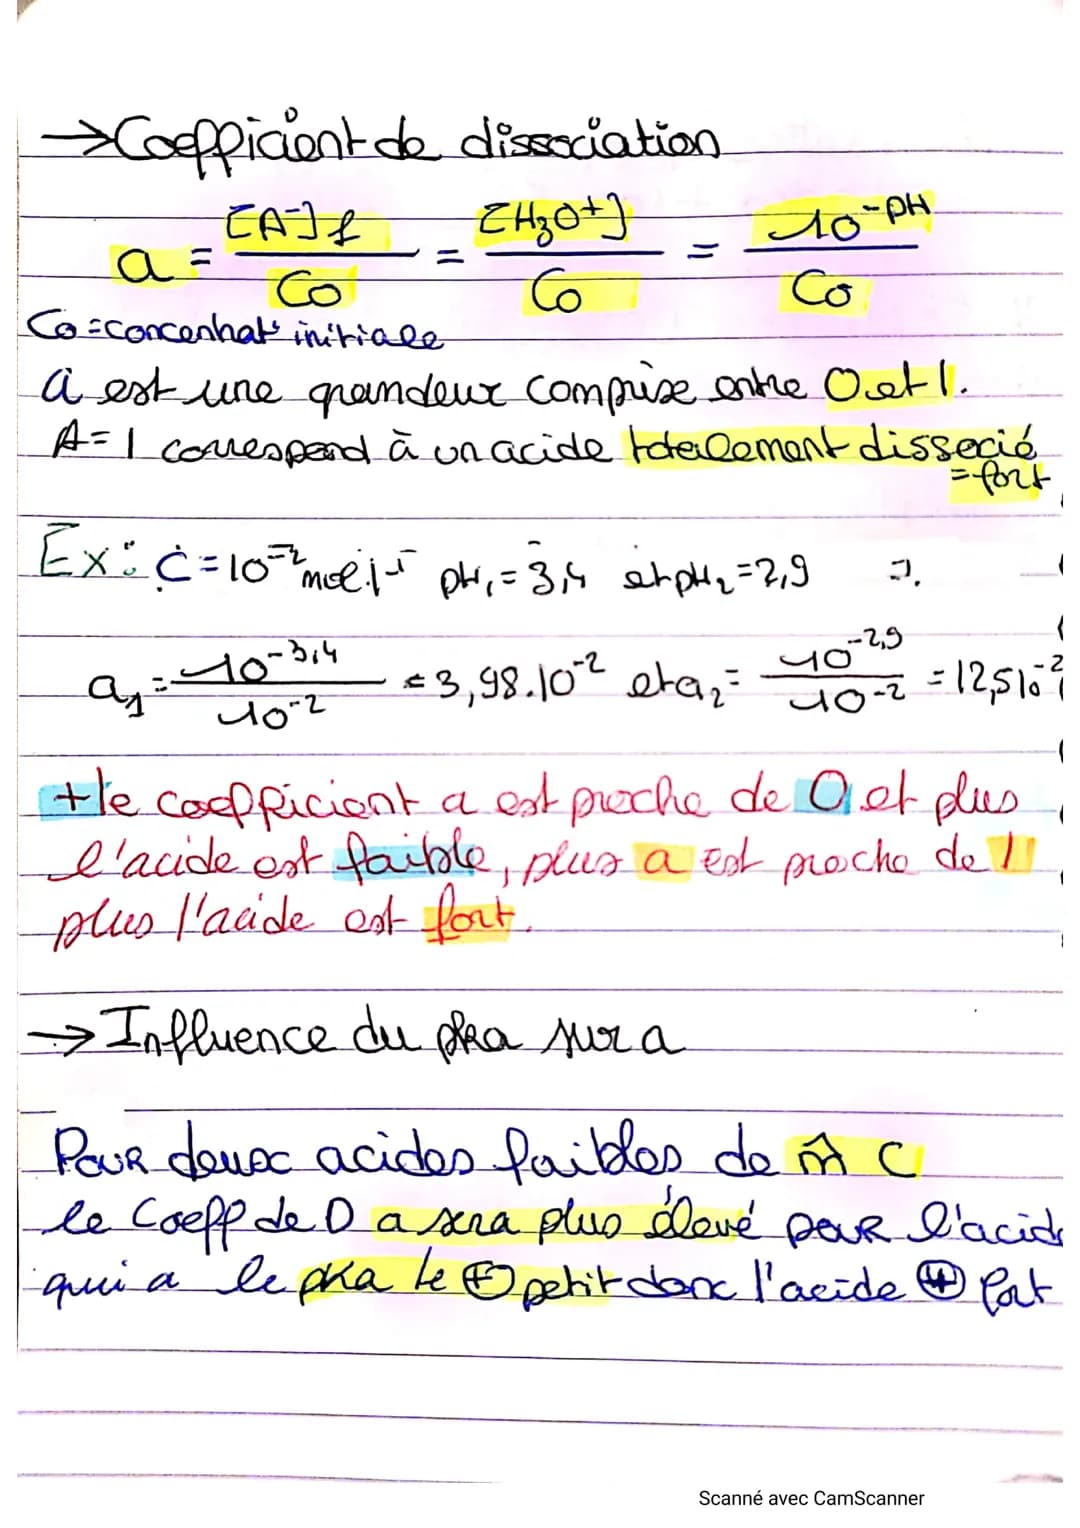 → Coefficient de dissociation
a = [A-]f / Co = [H3O+] / Co = 10^-pH / Co
Co = concentrat° initiale
a est une grandeur comprise entre 0 et 1.
A = 1 correspond à un acide totalement dissocié
= fort
Ex: C = 10^-2 mol.l^-1 pH1 = 3,4 et pH2 = 2,9
a1 = 10^-3,4 / 10^-2 = 3,98.10^-2 et a2 = 10^-2,9 / 10^-2 = 12,5 10^-2
+ le coefficient a est proche de 0 et plus
l'acide est faible, plus a est proche de 1
plus l'acide est fort.
→ Influence du pka sur a
Pour deux acides faibles de m̂ C
le Coeff de D a sera plus élevé pour l'acide
qui a le pka le ⊕ petit donc l'acide ⊕ fort
Scanné avec CamScanner